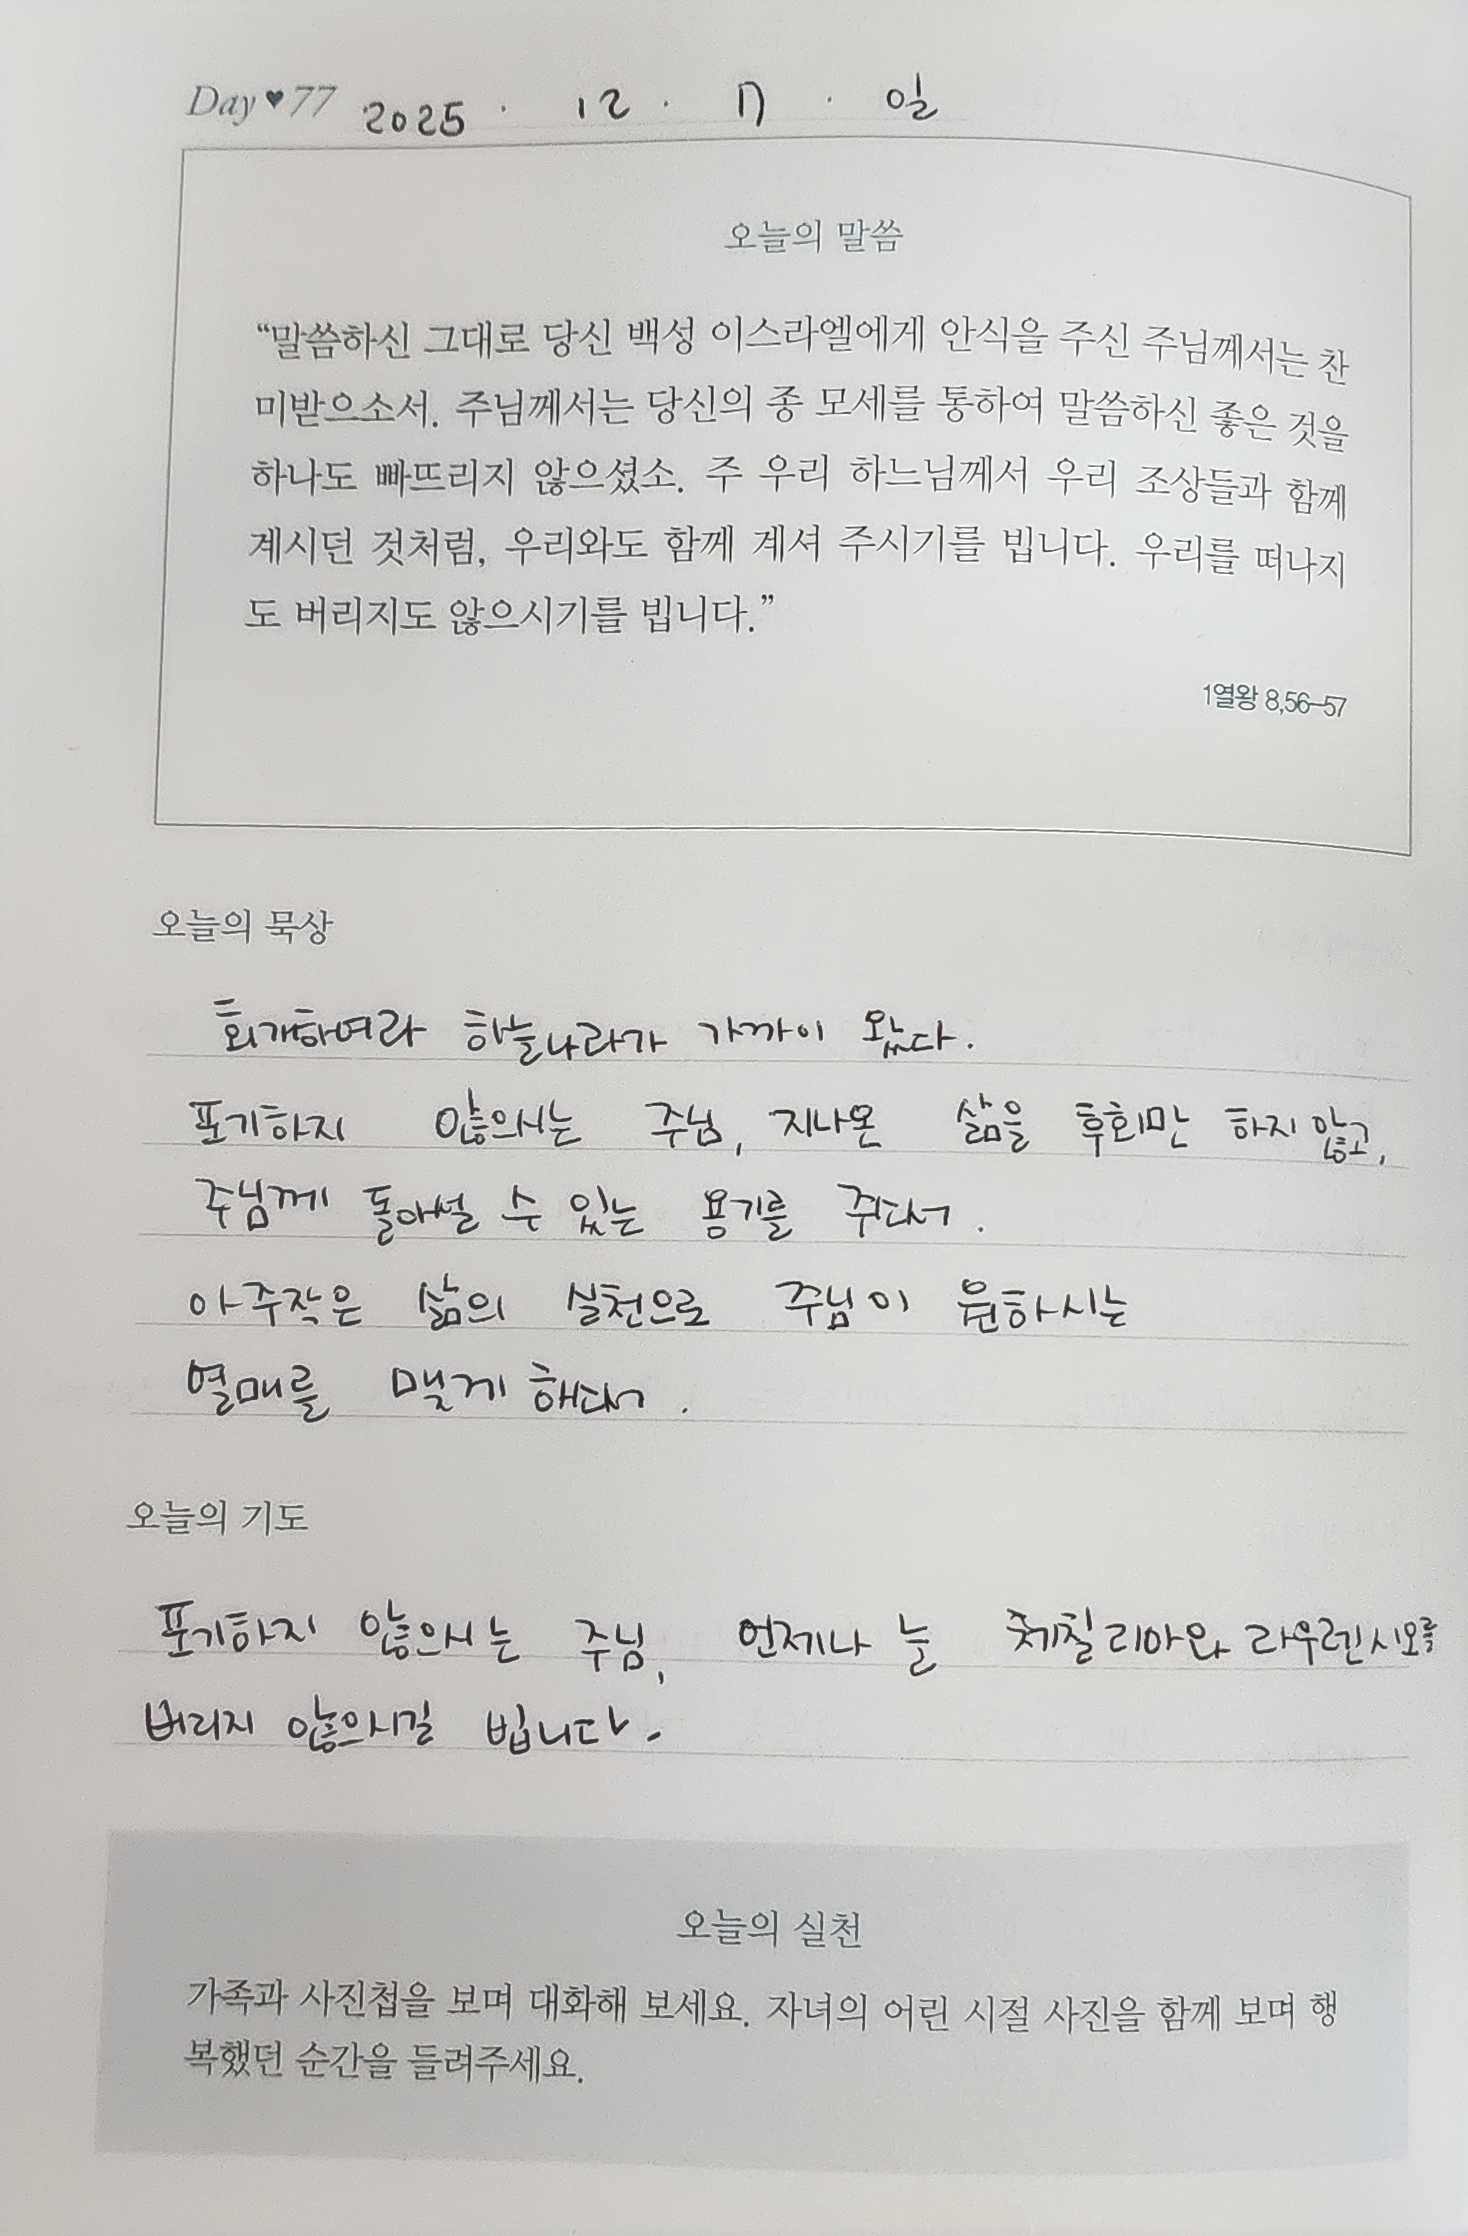 Day ♥ 77 2025 . 12 . 17 . 일
오늘의 말씀
“말씀하신 그대로 당신 백성 이스라엘에게 안식을 주신 주님께서는 찬
미받으소서. 주님께서는 당신의 종 모세를 통하여 말씀하신 좋은 것을
하나도 빠뜨리지 않으셨소. 주 우리 하느님께서 우리 조상들과 함께
계시던 것처럼, 우리와도 함께 계셔 주시기를 빕니다. 우리를 떠나지
도 버리지도 않으시기를 빕니다.”
1열왕 8,56–57
오늘의 묵상
회개하여라 하늘나라가 가까이 왔다.
포기하지 않의시는 주님, 지나온 삶을 후회만 하지 않고,
주님께 돌아설 수 있는 용기를 주다서.
아주작은 삶의 실천으로 주님이 원하시는
열매를 맺게 해다서.
오늘의 기도
포기하지 않으시는 주님, 언제나 늘 체칠리아와 라우렌시오를
버리지 않으시길 빕니다.
오늘의 실천
가족과 사진첩을 보며 대화해 보세요. 자녀의 어린 시절 사진을 함께 보며 행
복했던 순간을 들려주세요.